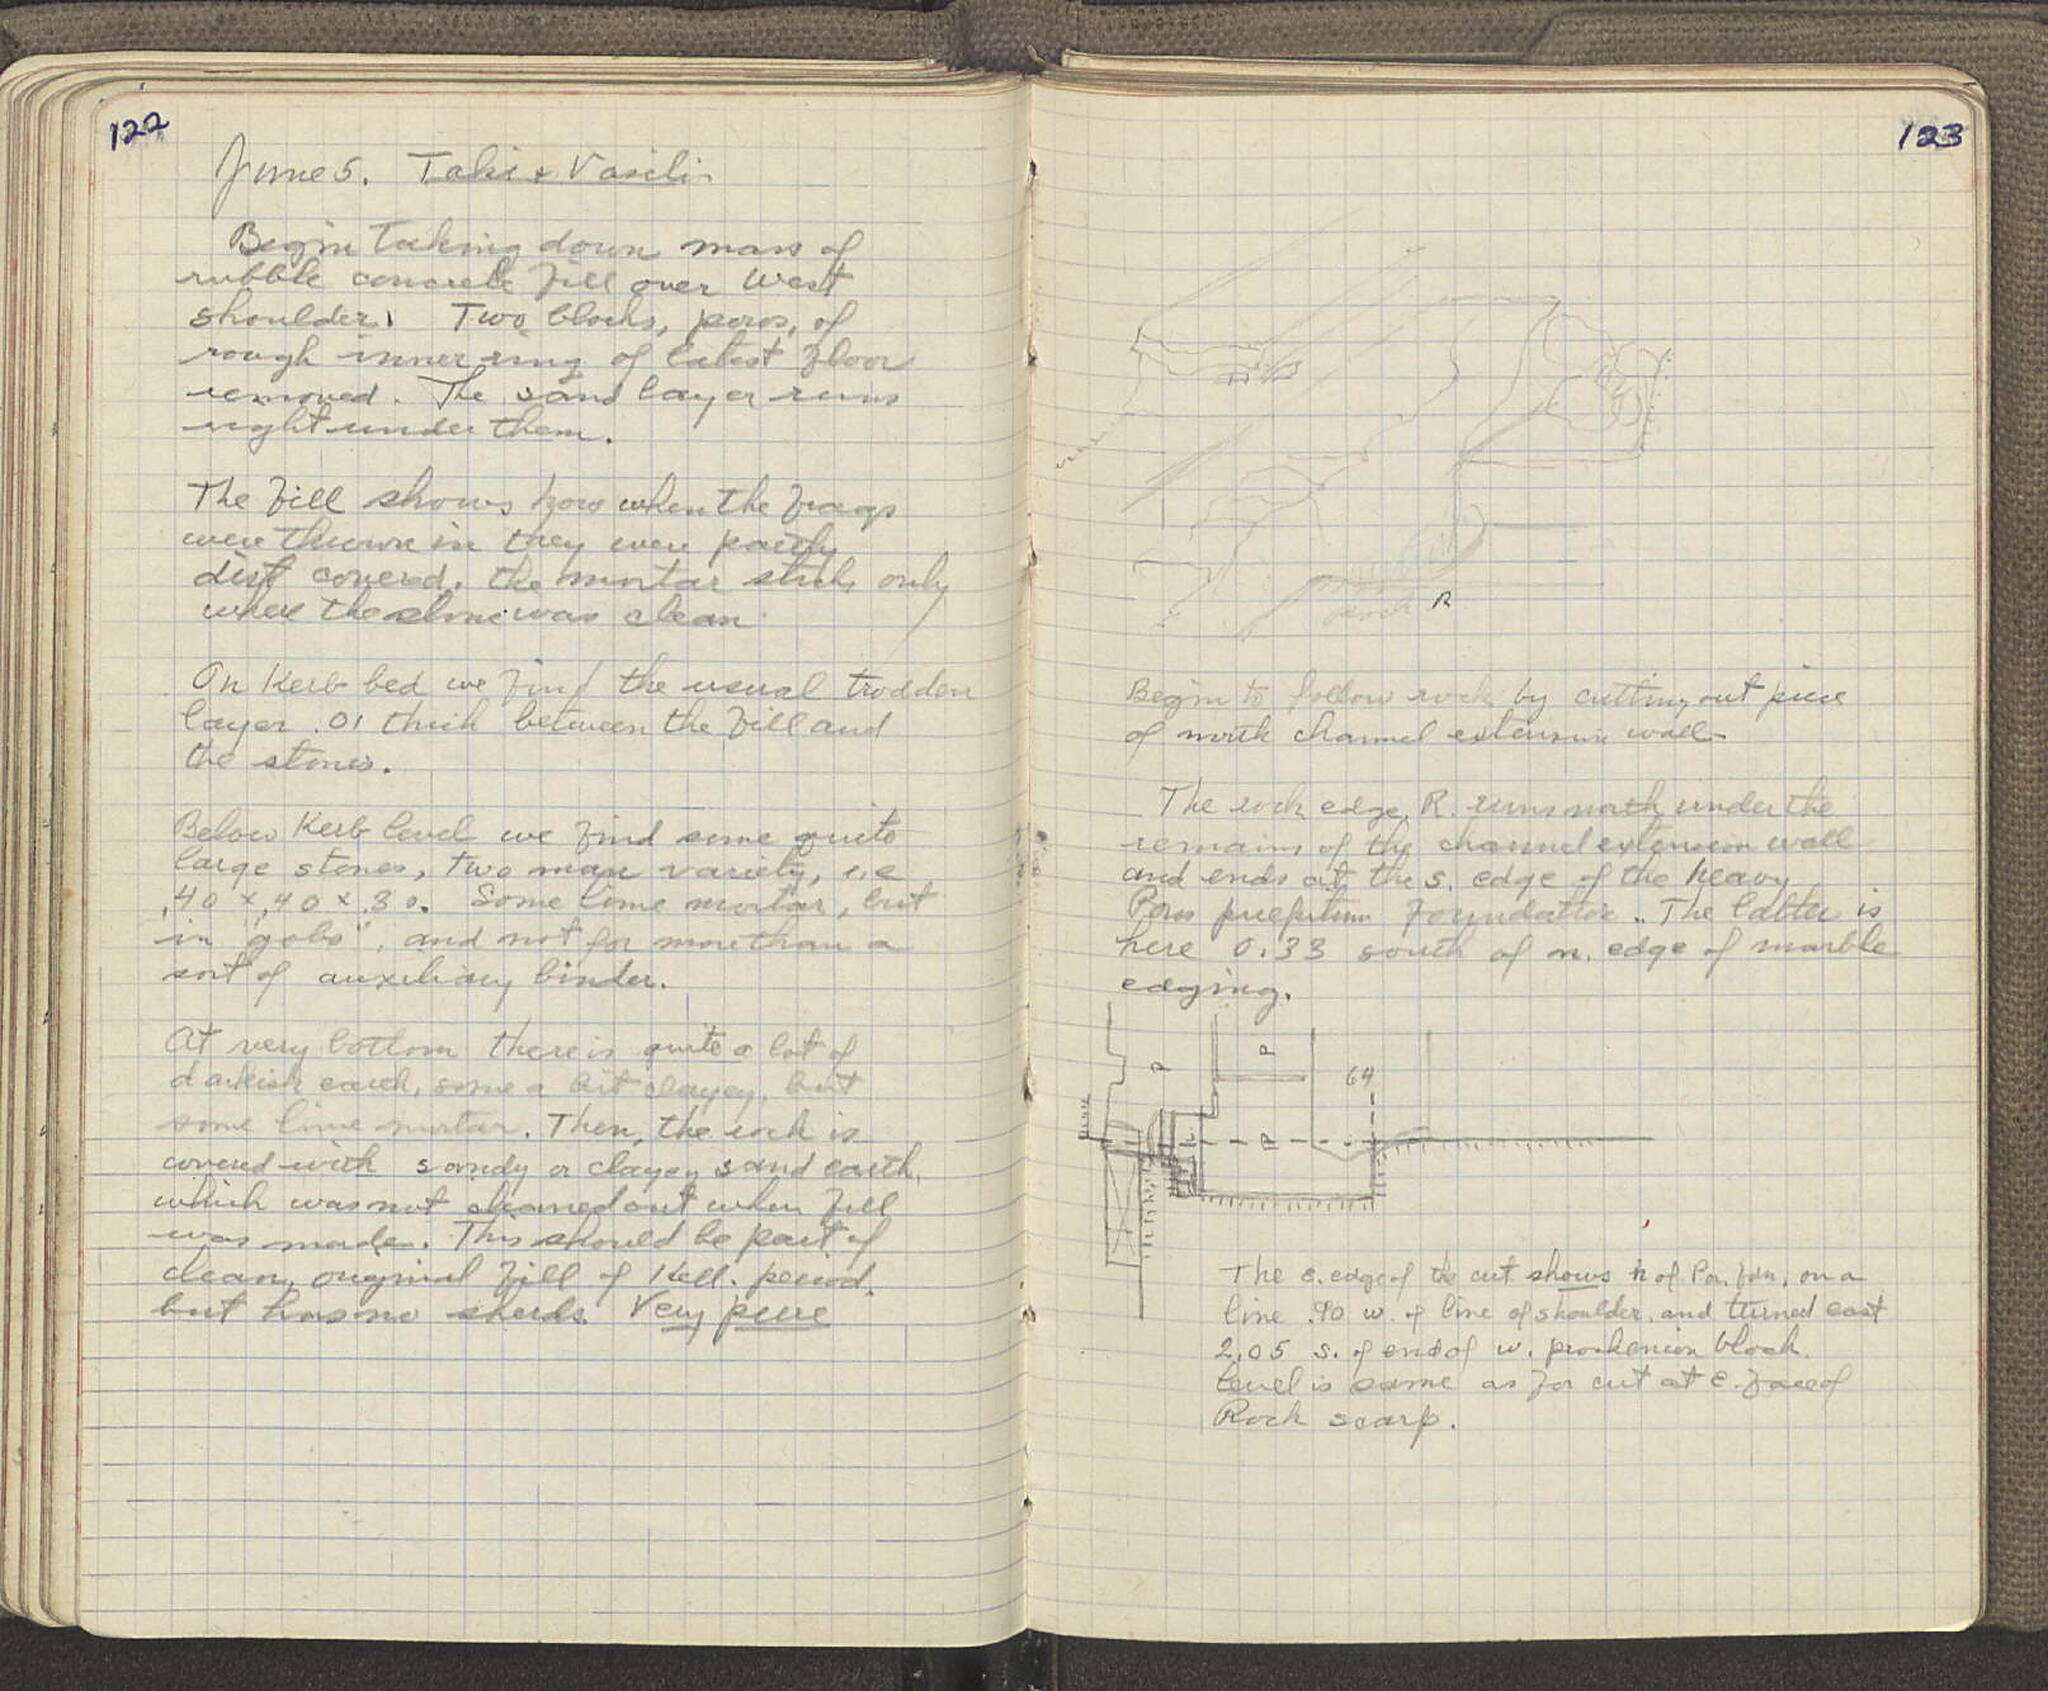 122
June 5. Taki + Vasili
Begin taking down mass of
rubble concrete fill over West
shoulder. Two blocks, poros, of
rough inner ring of latest floor
removed. The sand layer runs
right under them.
The fill shows how when the frags
were thrown in they were partly
dirt covered. the mortar stuck only
where the stone was clean
On Kerb bed we find the usual trodden
layer .01 thick between the fill and
the stones.
Below Kerb level we find some quite
large stones, two man variety, i.e
.40 x .40 x .30. Some lime mortar, but
in "gobs", and not for more than a
sort of auxiliary binder.
At very bottom there is quite a lot of
darkish earth, some a bit clayey, but
some lime mortar. Then, the rock is
covered with sandy or clayey sand earth,
which was not cleaned out when fill
was made. This should be part of
clean, original fill of Hell. period.
but has no sherds. Very pure
123
rock R
Begin to follow rock by cutting out piece
of north channel extension wall
The rock edge, R. runs north under the
remains of the channel extension wall
and ends at the s. edge of the heavy
Poros foundation. The latter is
here 0.33 south of n. edge of marble
edging.
P
P
64
P
The e. edge of the cut shows n of Po. fdn, on a
line .90 w. of line of shoulder, and turned east
2.05 s. of end of w. proskenion block.
Level is same as for cut at e. face of
Rock scarp.